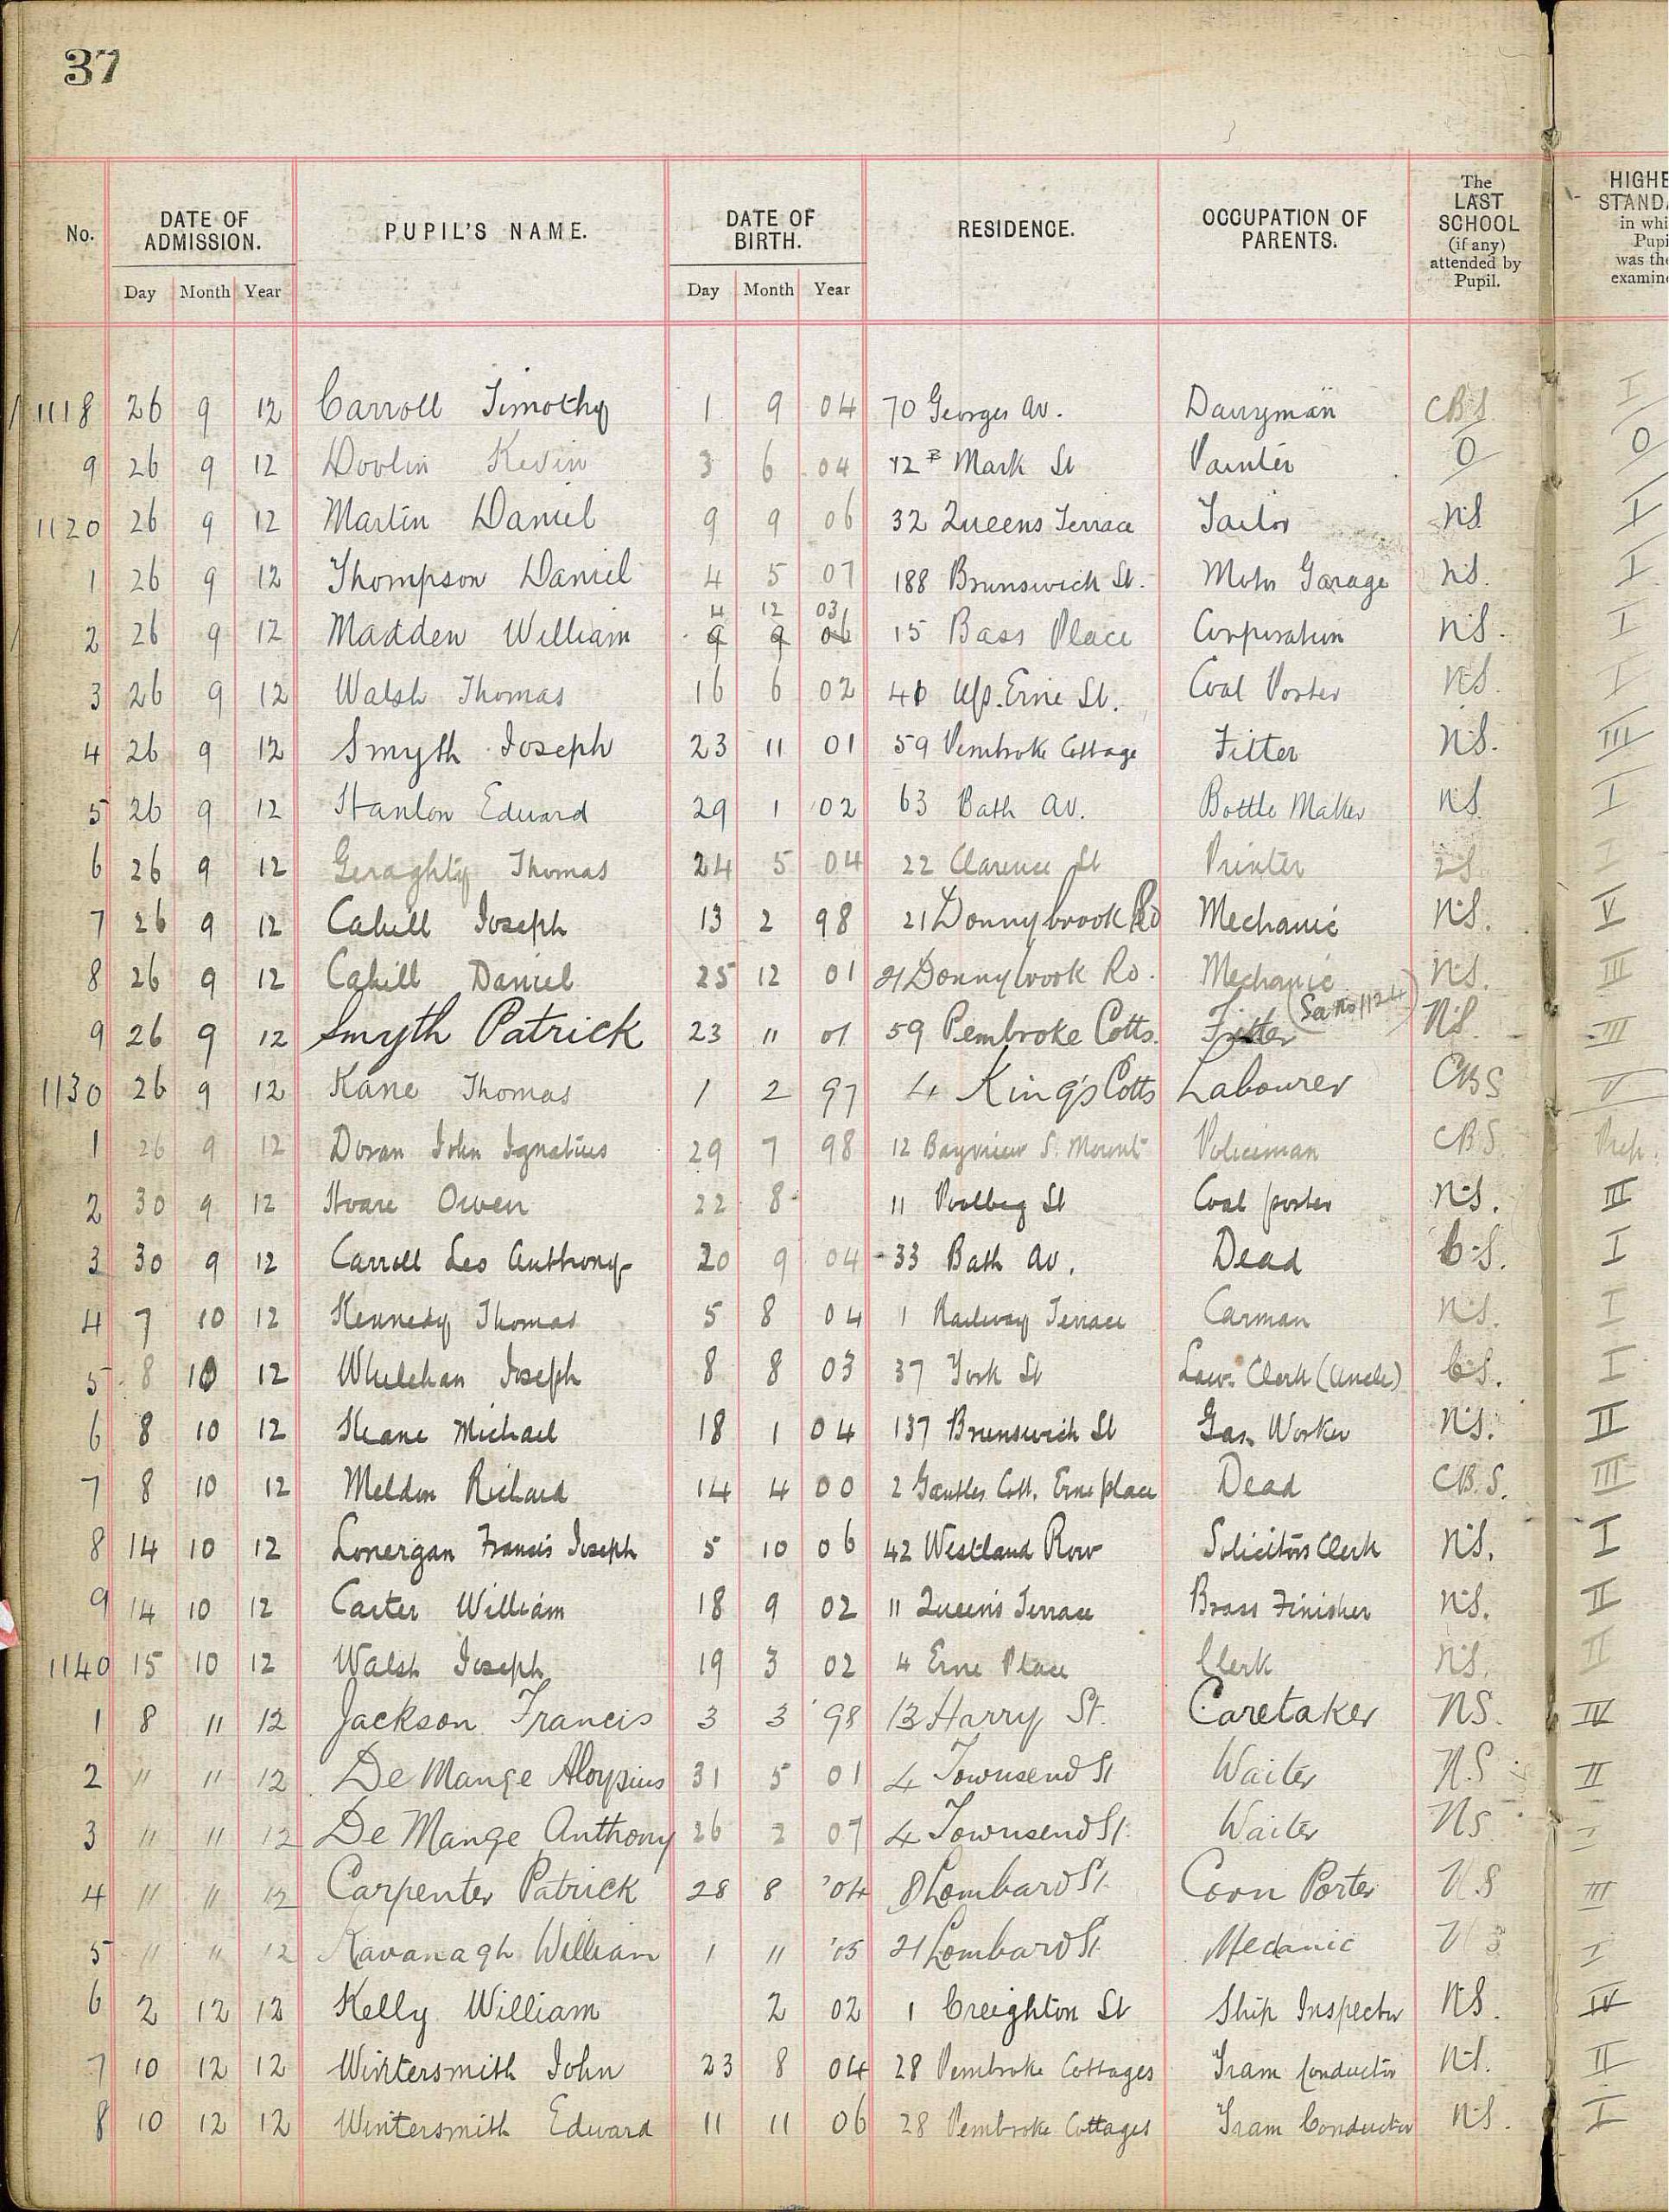 37
No. DATE OF ADMISSION. PUPIL'S NAME. DATE OF BIRTH. RESIDENCE. OCCUPATION OF PARENTS. The LAST SCHOOL (if any) attended by Pupil. HIGHE STANDA in whi Pupi was the examine
Day Month Year Day Month Year
1118 26 9 12 Carroll Timothy 1 9 04 70 Georges Av. Dairyman CBS I
9 26 9 12 Doolin Kevin 3 6 04 12 B Mark St Painter 0 0
1120 26 9 12 Martin Daniel 9 9 06 32 Queens Terrace Tailor NS I
1 26 9 12 Thompson Daniel 4 5 07 188 Brunswick St. Motor Garage NS. I
4 12 03
2 26 9 12 Madden William 9 9 06 15 Bass Place Corporation NS. I
3 26 9 12 Walsh Thomas 16 6 02 40 Up. Erne St. Coal Porter NS. I
4 26 9 12 Smyth Joseph 23 11 01 59 Pembroke Cottage Fitter NS. III
5 26 9 12 Hanlon Edward 29 1 02 63 Bath Av. Bottle Maker NS I
6 26 9 12 Geraghty Thomas 24 5 04 22 Clarence St Printer I
7 26 9 12 Cahill Joseph 13 2 98 21 Donnybrook Rd Mechanic NS. V
8 26 9 12 Cahill Daniel 25 12 01 21 Donnybrook Rd. Mechanic NS. III
9 26 9 12 Smyth Patrick 23 11 01 59 Pembroke Cotts. Fitter (See No 1124) NS. III
1130 26 9 12 Kane Thomas 1 2 97 4 King's Cotts Labourer CBS V
1 26 9 12 Doran John Ignatius 29 7 98 12 Bayview S. Mount Policeman CBS. Prep.
2 30 9 12 Hoare Owen 22 8 11 Poolbeg St Coal porter NS. III
3 30 9 12 Carroll Leo Anthony 20 9 04 33 Bath Av. Dead C.S. I
4 7 10 12 Kennedy Thomas 5 8 04 1 Railway Terrace Carman NS. I
5 8 10 12 Whelehan Joseph 8 8 03 37 York St Law Clerk (Uncle) C.S. I
6 8 10 12 Keane Michael 18 1 04 137 Brunswick St Gas Worker NS. II
7 8 10 12 Meldon Richard 14 4 00 2 Cott. Erne place Dead CB.S. III
8 14 10 12 Lonergan Francis Joseph 5 10 06 42 Westland Row Solicitors Clerk NS. I
9 14 10 12 Carter William 18 9 02 11 Queen's Terrace Brass Finisher NS. II
1140 15 10 12 Walsh Joseph 19 3 02 4 Erne Place Clerk NS. II
1 8 11 12 Jackson Francis 3 3 '98 13 Harry St. Caretaker NS. IV
2 " " 12 De Mange Aloysius 31 5 01 4 Townsend St Waiter N.S II
3 " " 12 De Mange Anthony 26 2 07 4 Townsend St. Waiter NS I
4 " " 12 Carpenter Patrick 28 8 '04 8 Lombard St. Corn Porter NS III
5 " " 12 Kavanagh William 1 11 '05 21 Lombard St. Mecanic NS I
6 2 12 12 Kelly William 2 02 1 Creighton St Ship Inspector NS. IV
7 10 12 12 Wintersmith John 23 8 04 28 Pembroke Cottages Tram Conductor NS. II
8 10 12 12 Wintersmith Edward 11 11 06 28 Pembroke Cottages Tram Conductor NS. I